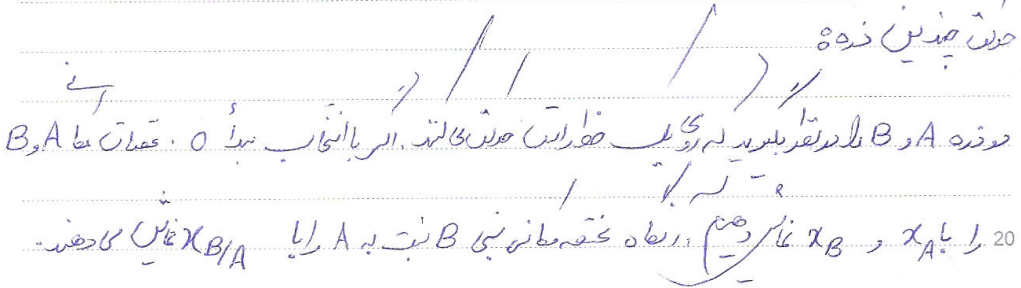 حرکت چندین ذره
دو ذره A و B را در نظر بگیرید که روی یک خط راست حرکت می‌کنند. اگر با انتخاب مبدأ O. مختصات A و B
را با xA و xB نمایش دهیم. آنگاه مختصه مکانی نسبی B نسبت به A را با xB/A نمایش می‌دهند. 20